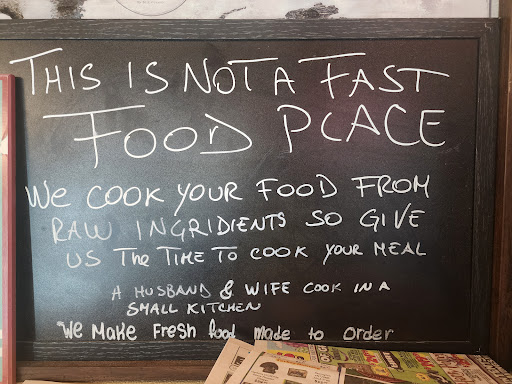 THIS IS NOT A FAST
FOOD PLACE
We COOK YOUR FOOD FROM
RAW INGRIDIENTS SO GIVE
US The TIME TO COOK YOUR MEAL
A HUSBAND & WIFE COOK IN A
SMALL KITCHEN
We Make Fresh food made to order